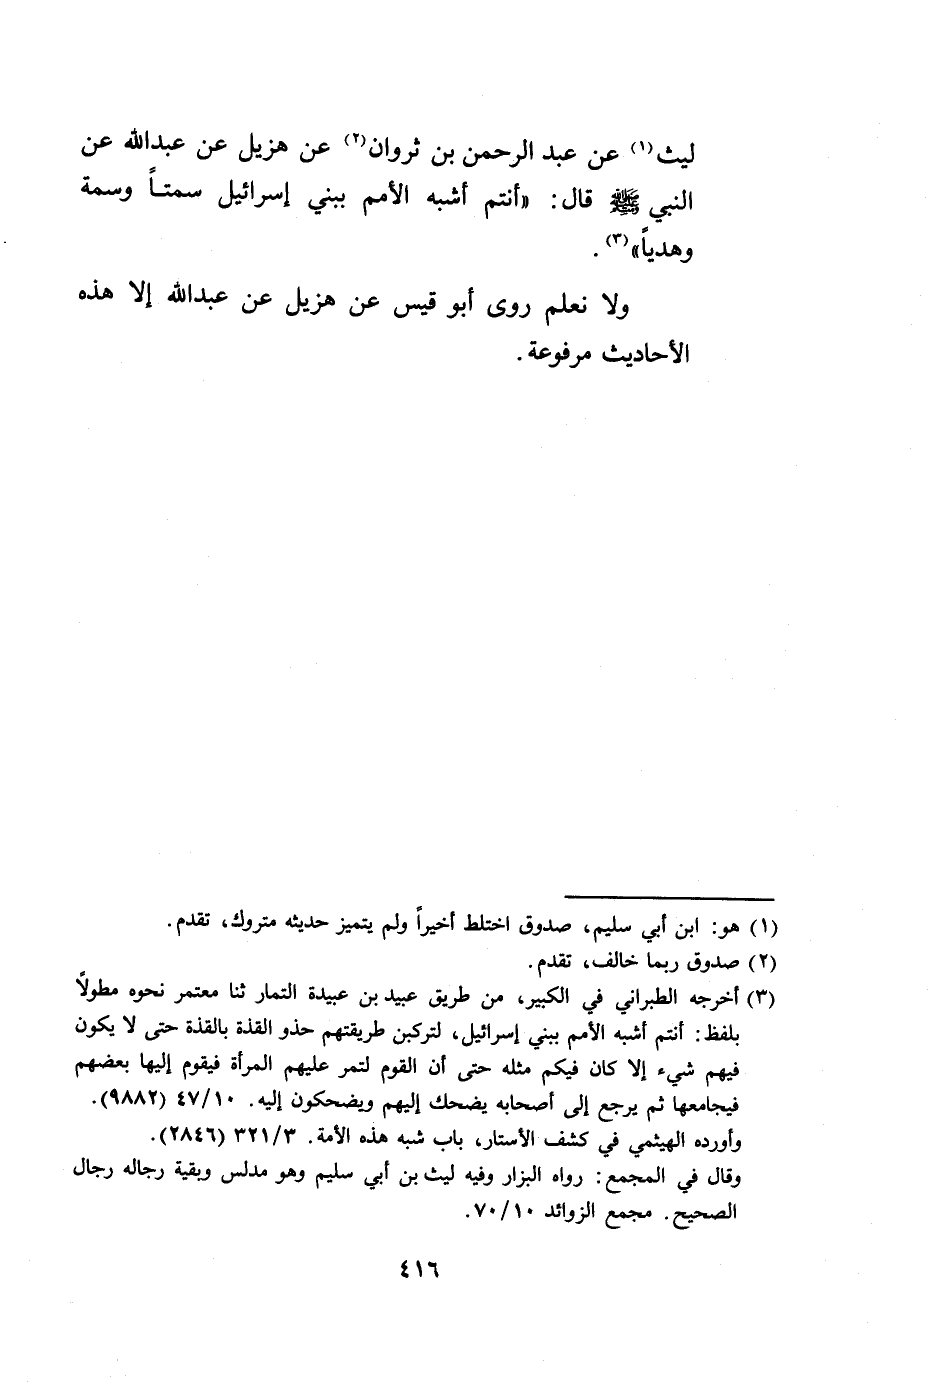 ليث(١) عن عبد الرحمن بن ثروان(٢) عن هزيل عن عبدالله عن
النبي ﷺ قال: «أنتم أشبه الأمم ببني إسرائيل سمتاً وسمة
وهدياً»(٣).
ولا نعلم روى أبو قيس عن هزيل عن عبدالله إلا هذه
الأحاديث مرفوعة.
(١) هو: ابن أبي سليم، صدوق اختلط أخيراً ولم يتميز حديثه متروك، تقدم.
(٢) صدوق ربما خالف، تقدم.
(٣) أخرجه الطبراني في الكبير، من طريق عبيد بن عبيدة التمار ثنا معتمر نحوه مطولاً
بلفظ: أنتم أشبه الأمم ببني إسرائيل، لتركبن طريقتهم حذو القذة بالقذة حتى لا يكون
فيهم شيء إلا كان فيكم مثله حتى أن القوم لتمر عليهم المرأة فيقوم إليها بعضهم
فيجامعها ثم يرجع إلى أصحابه يضحك إليهم ويضحكون إليه. ٤٧/١٠ (٩٨٨٢).
وأورده الهيثمي في كشف الأستار، باب شبه هذه الأمة. ٣٢١/٣ (٢٨٤٦).
وقال في المجمع: رواه البزار وفيه ليث بن أبي سليم وهو مدلس وبقية رجاله رجال
الصحيح. مجمع الزوائد ٧٠/١٠.
٤١٦